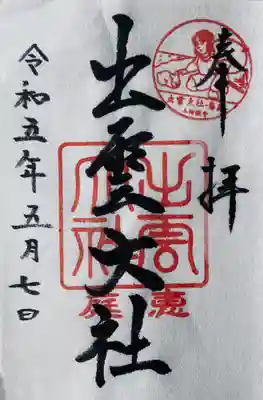 奉拝
出雲大社
令和五年五月七日
出雲大社
恵庭